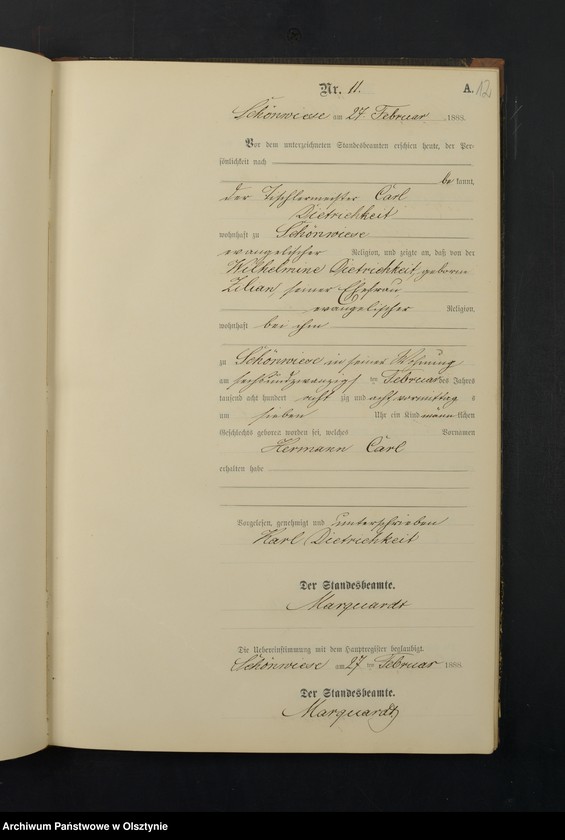 Nr. 11.
A. 12
Schönwiese am 27 Februar 1888.
Vor dem unterzeichneten Standesbeamten erschien heute, der Per-
sönlichkeit nach
be kannt,
der Tischlermeister Carl
Dietrichkeit
wohnhaft zu Schönwiese
evangelischer Religion, und zeigte an, daß von der
Wilhelmine Dietrichkeit geborne
Zilian, seiner Ehefrau
evangelischer Religion,
wohnhaft bei ihm
zu Schönwiese in seiner Wohnung
am sechsundzwanzigsten Februar des Jahres
tausend acht hundert acht zig und acht vormittag s
um sieben Uhr ein Kind männ lichen
Geschlechts geboren worden sei, welches Vornamen
Hermann Carl
erhalten habe
Vorgelesen, genehmigt und unterschrieben
Karl Dietrichkeit
Der Standesbeamte.
Marquardt
Die Uebereinstimmung mit dem Hauptregister beglaubigt.
Schönwiese am 27 ten Februar 1888.
Der Standesbeamte.
Marquardt
Archiwum Państwowe w Olsztynie